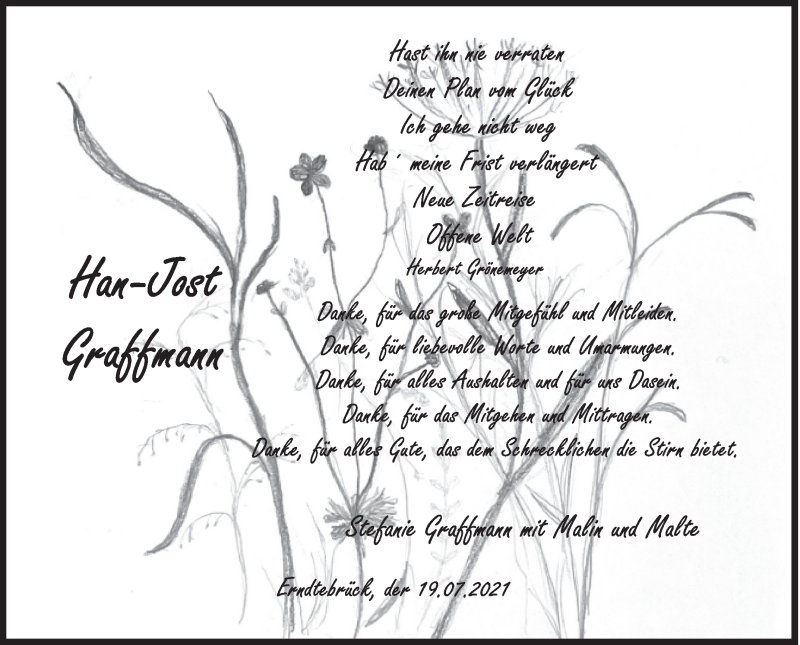 Hast ihn nie verraten
Deinen Plan vom Glück
Ich gehe nicht weg
Hab´ meine Frist verlängert
Neue Zeitreise
Offene Welt
Herbert Grönemeyer
Han-Jost
Graffmann
Danke, für das große Mitgefühl und Mitleiden.
Danke, für liebevolle Worte und Umarmungen.
Danke, für alles Aushalten und für uns Dasein.
Danke, für das Mitgehen und Mittragen.
Danke, für alles Gute, das dem Schrecklichen die Stirn bietet.
Stefanie Graffmann mit Malin und Malte
Erndtebrück, der 19.07.2021